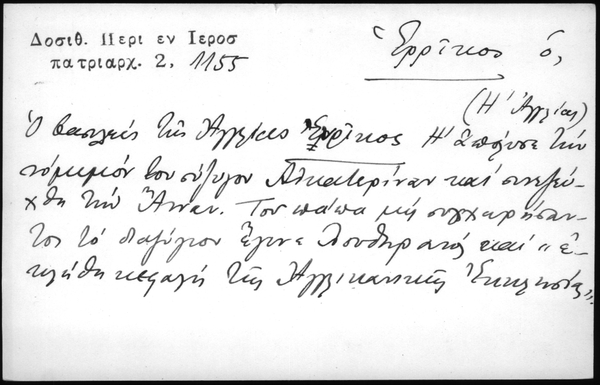 Δοσιθ. Περι εν Ιεροσ
πατριαρχ. 2, 1155
Ἐρρῖκος ὁ,
(Η' Ἀγγλίας)
Ὁ βασιλεύς τῆς Ἀγγλίας Ἐρρῖκος Η' ἀπέλυσε τήν
νόμιμόν του σύζυγον Αἰκατερίναν καί συνεζεύ-
χθη τήν Ἄνναν. Τοῦ πάπα μή συγχωρήσαν-
τος τό διαζύγιον ἔγινε Λουθηρανός καί "ἐ-
κλήθη κεφαλή τῆς Ἀγγλικανικῆς Ἐκκλησίας".